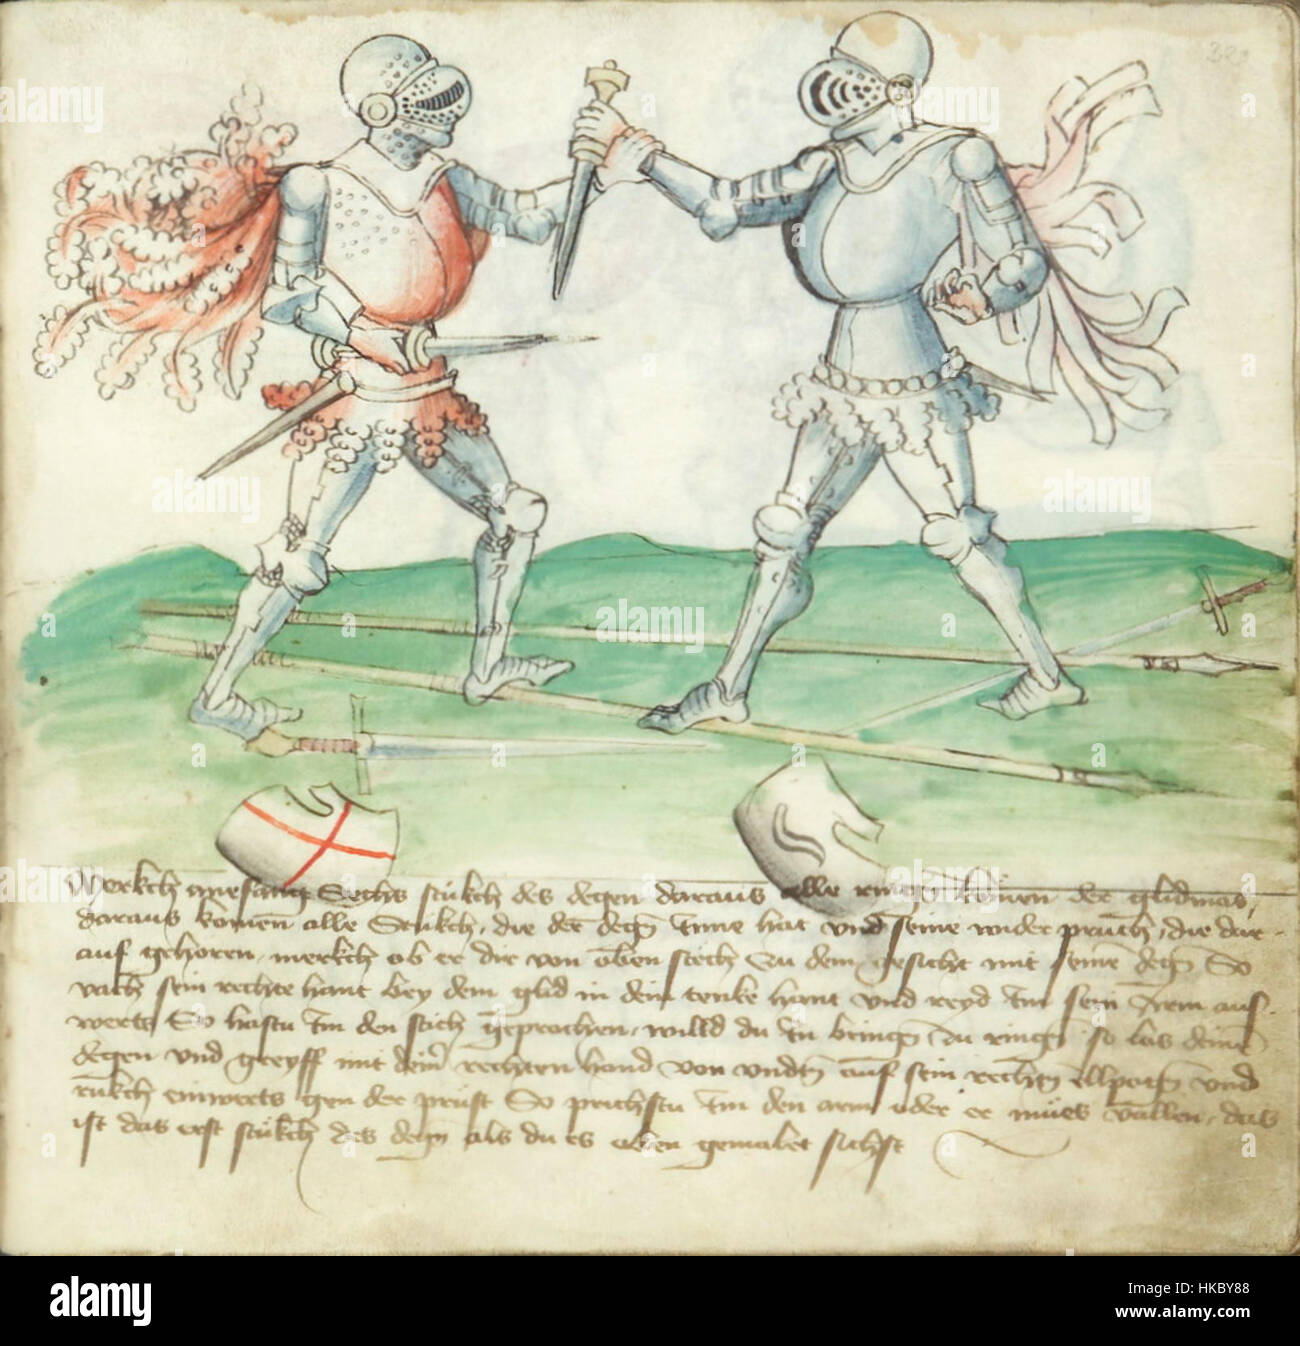 32
Merckh anefang Sechs stuckh des degen daraus alle ringen komen der glidmas,
daraus komen alle Stuckh, die der degen Inne hat und seine wider pruch, die dar-
auf gehoren, merckh ob er dir von oben stech zu dem gesicht mit seinem degen So
vach sein rechte hant bey dem glid in dein tenke hant und reyd Im sein Arm auf-
werts So hastu Im den stich geprochen, willd du In bringen zu ringen so las deinen
degen und greyff mit deiner rechten hand von undten auf sein rechten ellpogen und
ruckh einwerts gen der prust So prichstu Im den arm oder er mues vallen, das
ist das erst stuckh des degen als du es oben gemalet sichst
alamy
Image ID: HKCY88
www.alamy.com